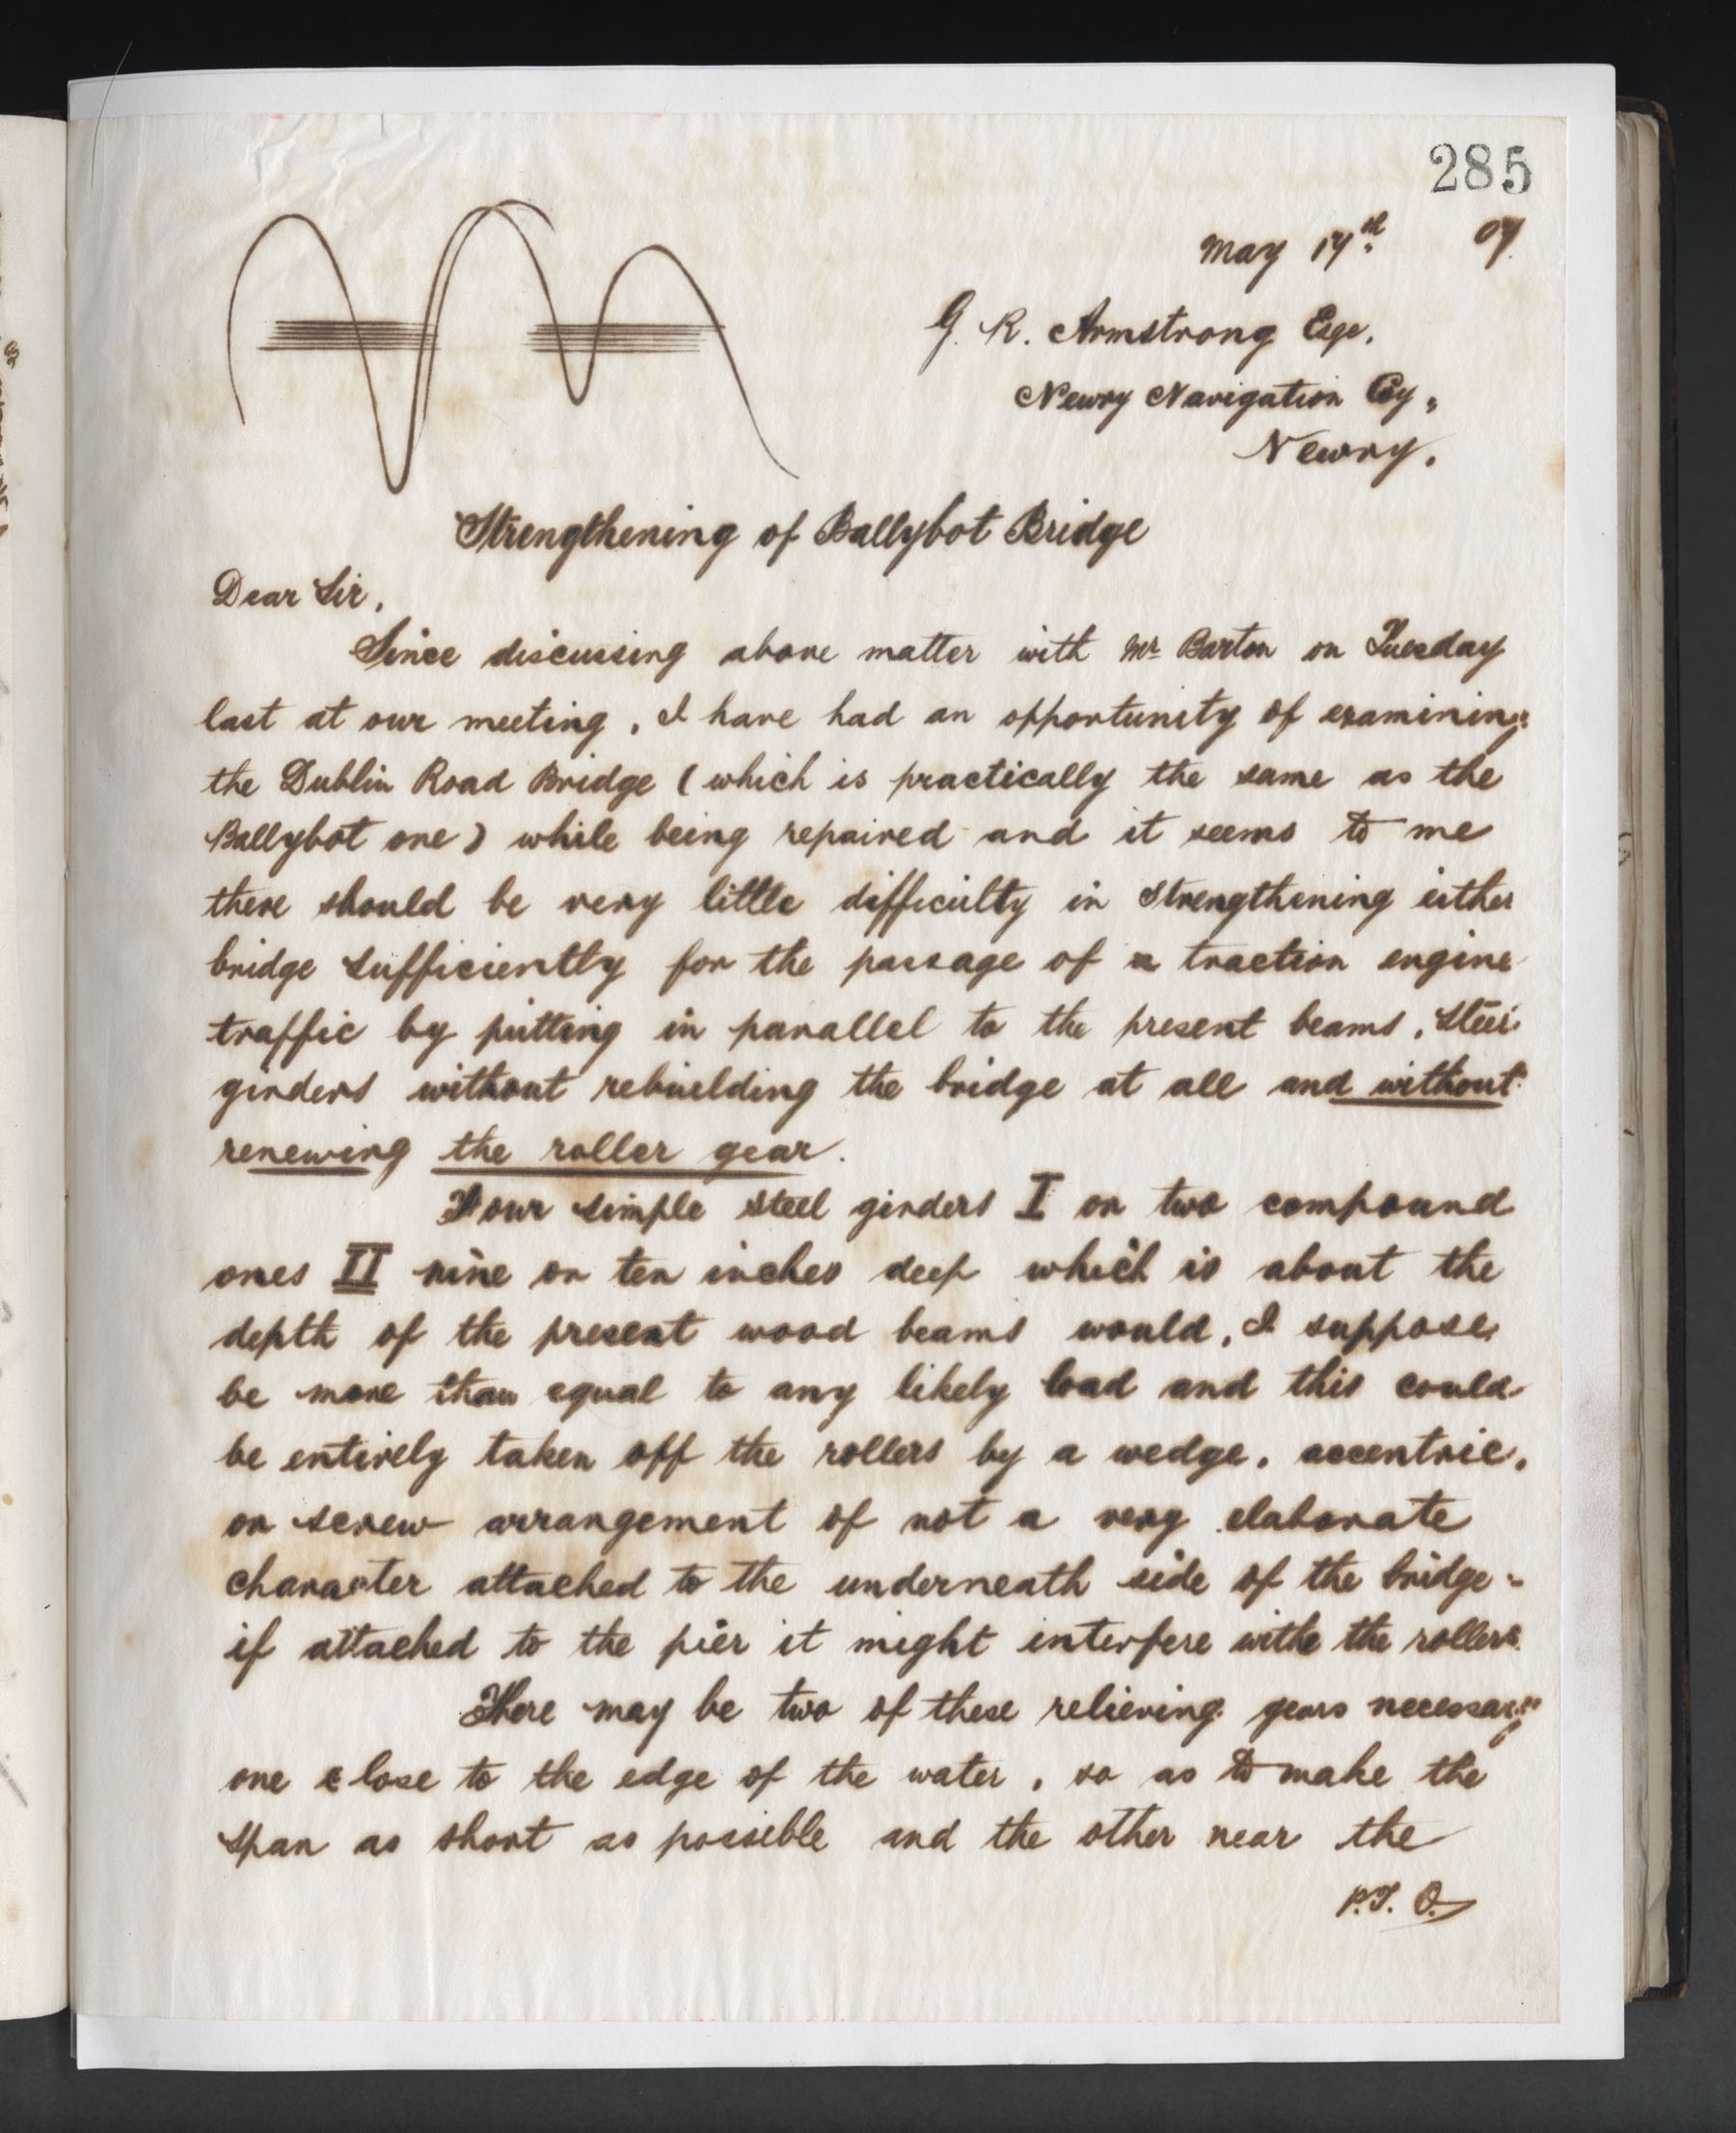 285
May 17th 07
G. R. Armstrong Esqr.
Newry Navigation Coy,
Newry.
Strengthening of Ballybot Bridge
Dear Sir,
Since discussing above matter with Mr Barton on Tuesday
last at our meeting, I have had an opportunity of examining
the Dublin Road Bridge (which is practically the same as the
Ballybot one) while being repaired and it seems to me
there should be very little difficulty in strengthening either
bridge sufficiently for the passage of a traction engine
traffic by putting in parallel to the present beams, steel
girders without rebuilding the bridge at all and without
renewing the roller gear.
Four simple steel girders I or two compound
ones II nine or ten inches deep which is about the
depth of the present wood beams would, I suppose,
be more than equal to any likely load and this could
be entirely taken off the rollers by a wedge, accentric,
or screw arrangement of not a very elaborate
character attached to the underneath side of the bridge -
if attached to the pier it might interfere withe the rollers.
There may be two of these relieving gears necessary
one close to the edge of the water, so as to make the
span as short as possible and the other near the
P.T.O.